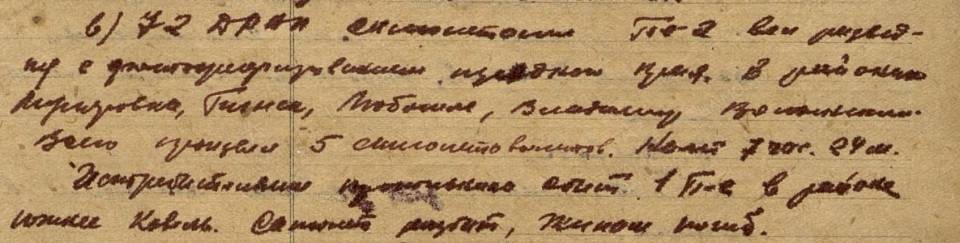 в) 72 ДРАП самолетами Пе-2 вел развед-
ку с фотографированием переднего края в районах
Мацеюв, Любомль, Владимир Волынский.
Всего произвел 5 самолетовылетов. Налет 7 час. 24 м.
Истребителями противника сбит 1 Пе-2 в районе
южнее Ковель. Самолет разбит, экипаж погиб.